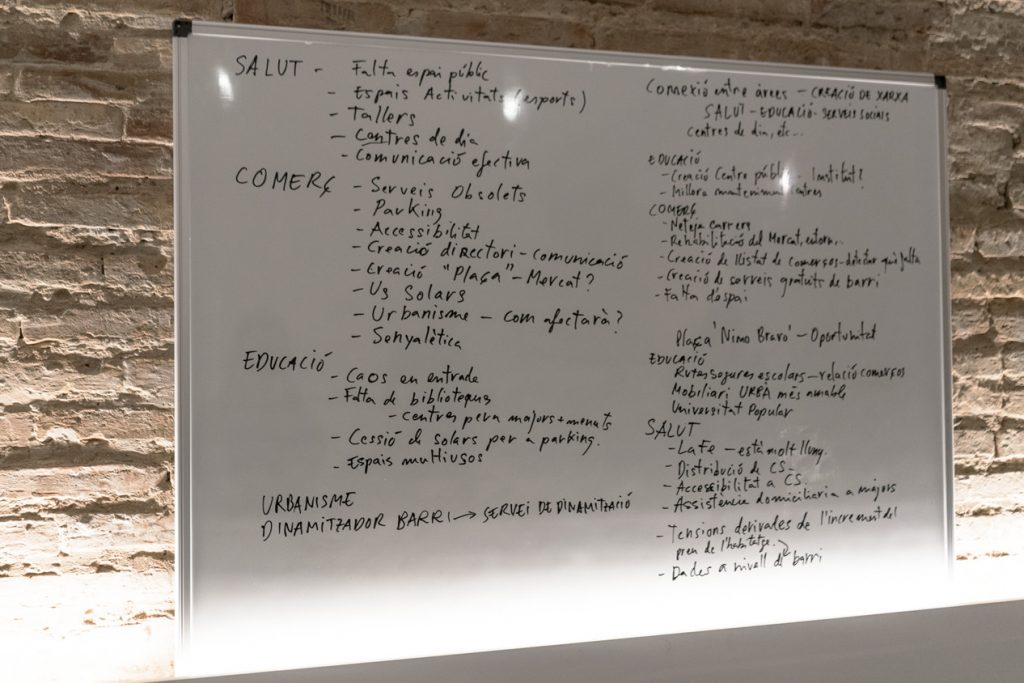 SALUT - Falta espai públic
- Espais Activitats (esports)
- Tallers
- Centres de dia
- Comunicació efectiva
COMERÇ - Serveis Obsolets
- Parking
- Accessibilitat
- Creació directori - comunicació
- Creació "Plaça" - Mercat?
- Us Solars
- Urbanisme - com afectarà?
- Senyalètica
EDUCACIÓ - Caos en entrade
- Falta de biblioteques
- centres per a majors + menuts
- Cessió de solars per a parking.
- Espais multiusos
URBANISME
DINAMITZADOR BARRI → SERVEI DE DINAMITZACIÓ
Connexió entre àrees - CREACIÓ DE XARXA
SALUT - EDUCACIÓ - SERVEIS SOCIALS
centres de dia, etc...
EDUCACIÓ
- Creació Centro públic - Institut?
- Millora manteniment centres
COMERÇ
- Neteja carrers
- Rehabilitació del Mercat, entorn...
- Creació de llistat de comerços - detectar què falta
- Creació de serveis gratuits de barri
- Falta d'espai
Plaça 'Nino Bravo' - Oportunitat
EDUCACIÓ
Rutes Segures escolars - relació comerços
Mobiliari URBÀ més amable
Universitat Popular
SALUT
- La Fe - està molt lluny.
- Distribució de CS -
- Accessibilitat a CS.
- Assistència domiciliaria a majors
- Tensions derivades de l'increment del
preu de l'habitatge.
- Dades a nivell de barri